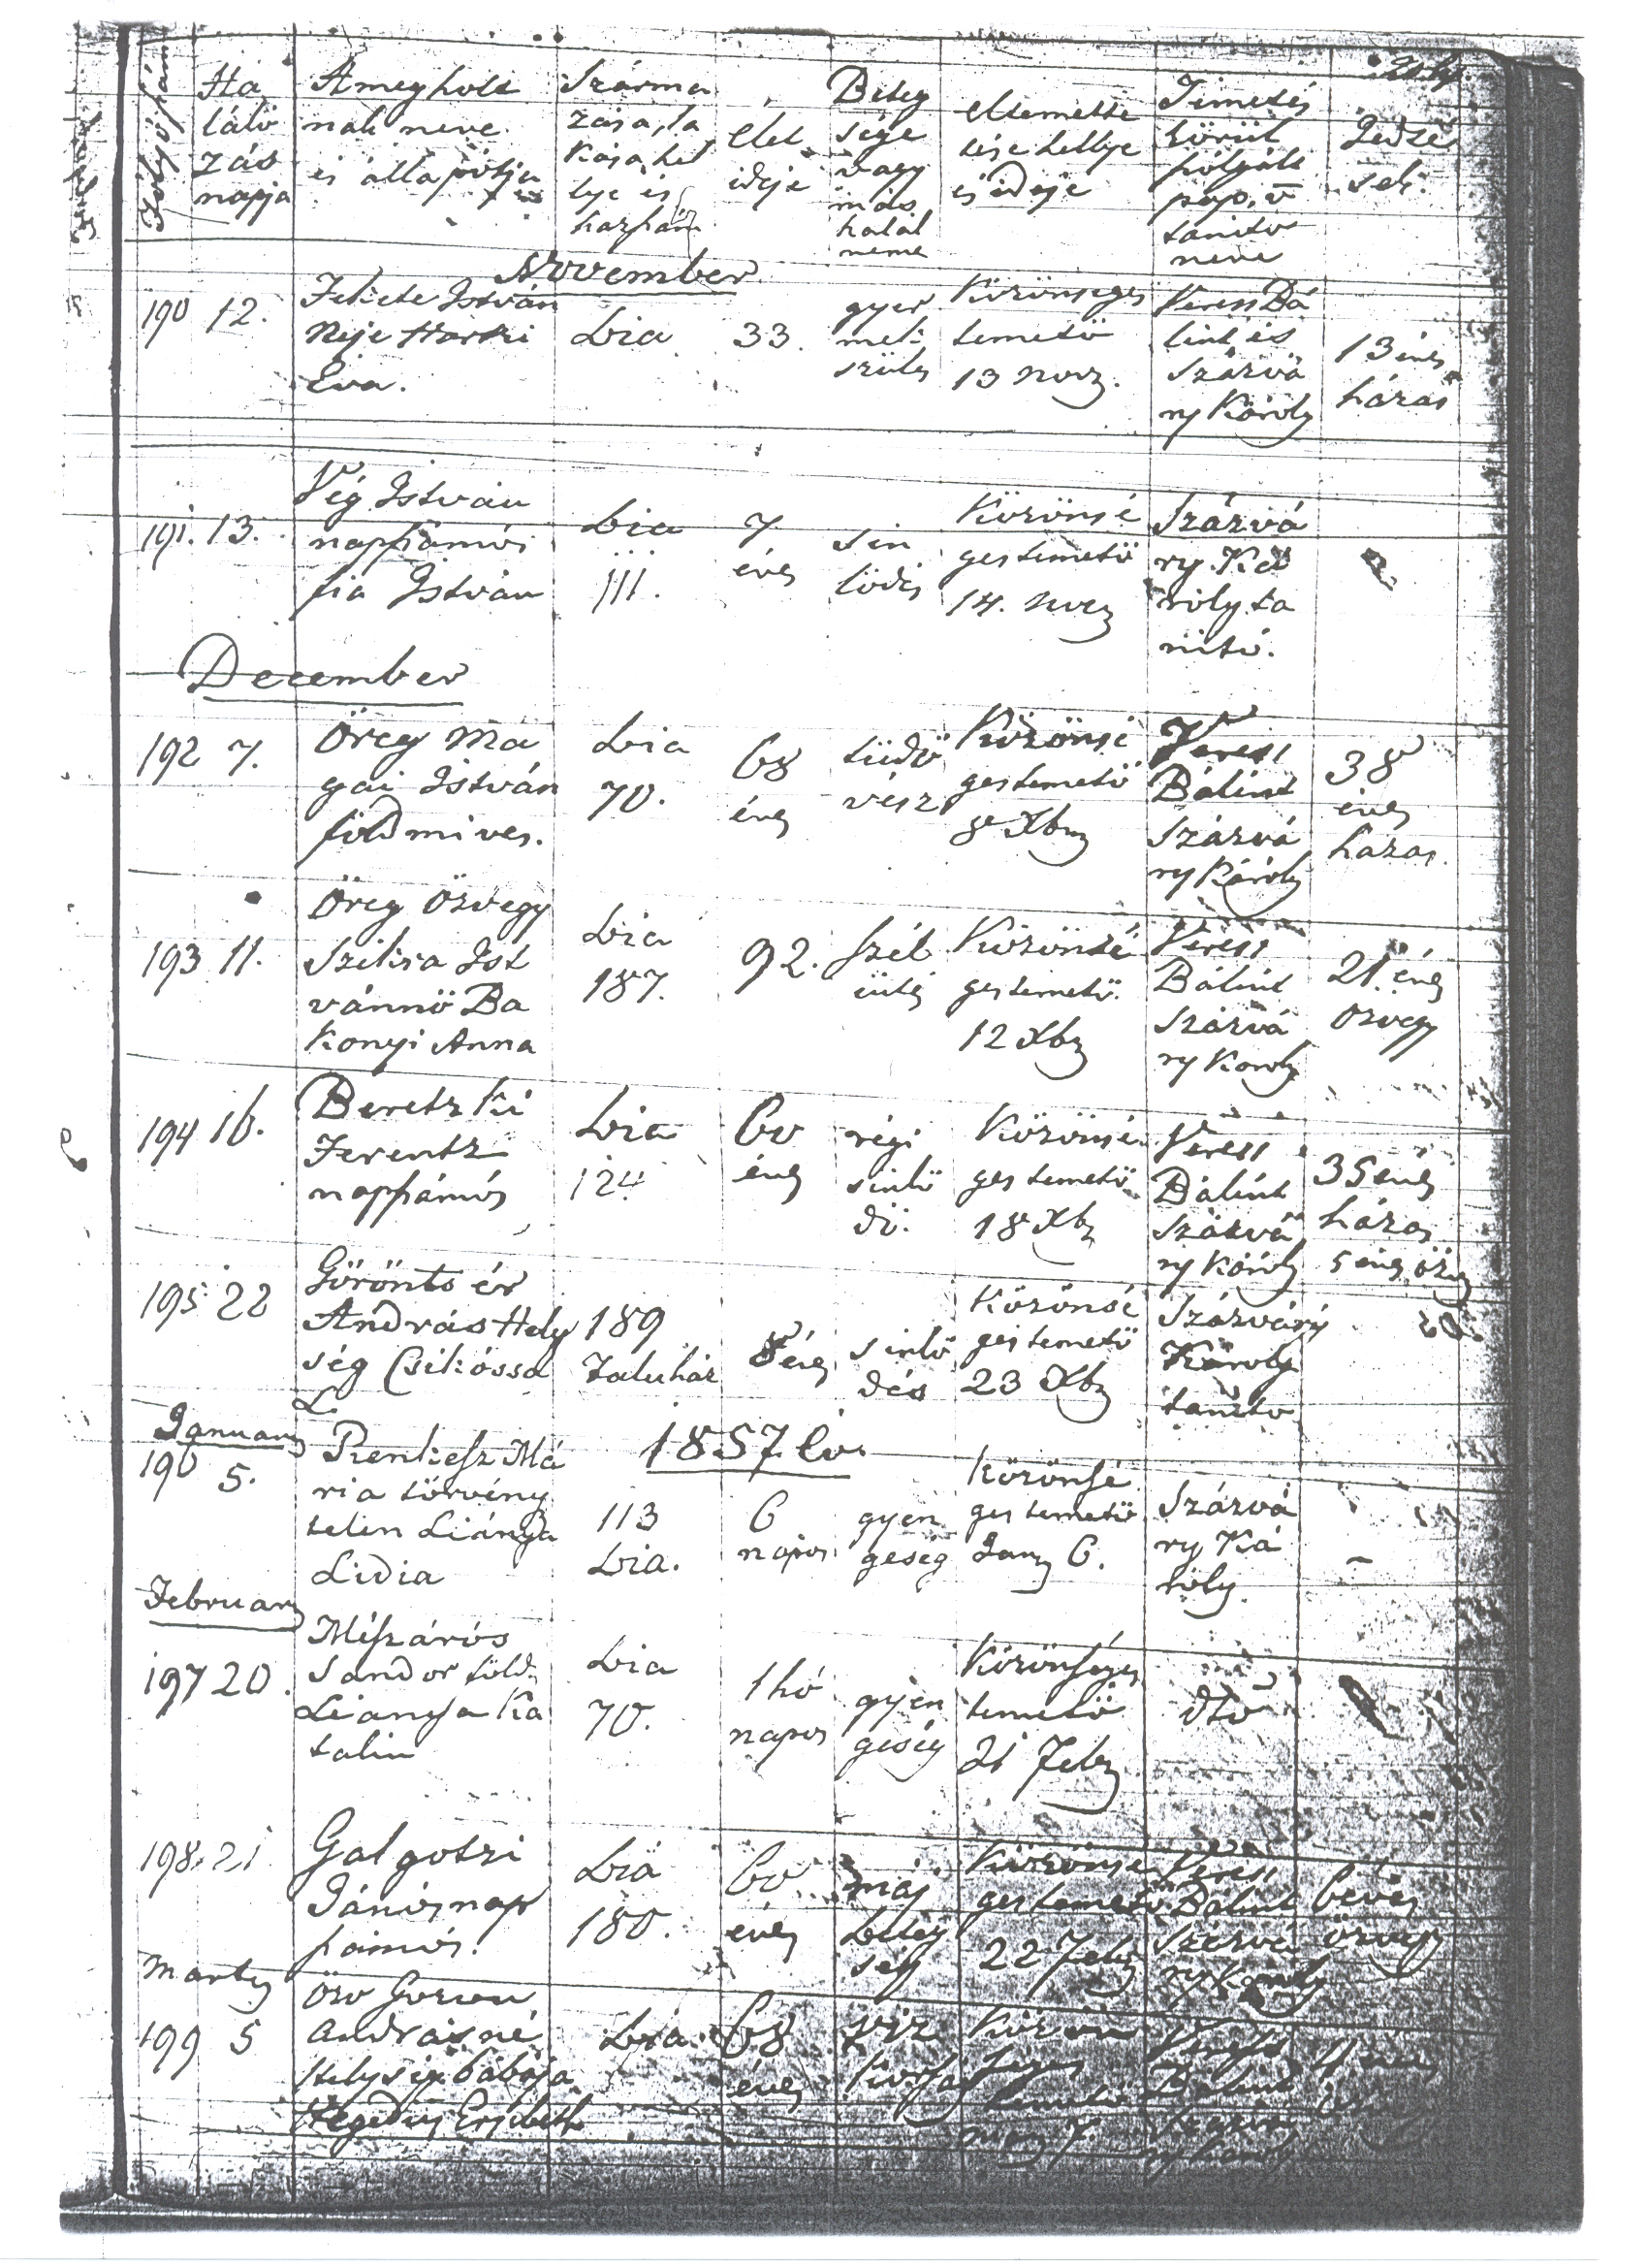 Folyó szám
Ha
láló
zás
napja
A megholt
nak neve
és állapotja
Szárma
zása, la
kása hel
lye és
házszám
élet
ideje
Beteg
sége
vagy
más
halál
neme
eltemette
tése hellye
és ideje
Temetés
körül
szolgált
pap, v
tanító
neve
Jedzé
sek.
November
190 12.
Fekete István
Neje Harki
Éva.
Bia
33.
gyer
mek
szülés
Közönséges
temető
13 Novz.
Veress Bá
lint és
Szárvá
ry Károly
13 éves
házas
191. 13.
Vég István
napszámos
fia István
Bia
111.
7
éves
sin
lődés
Közönsé
ges temető
14. Novz
Szárvá
ry Ká
roly ta
nító.
December
192 7.
Öreg Má
gai István
földmives.
Bia
70.
68
éves
tüdő
vész
Közönsé
ges temető
8 Xbz
Veress
Bálint
Szárvá
ry Károly
38
éves
házas.
193 11.
Öreg Özvegy
Sziksa Ist
vánnö Ba
konyi Anna
Bia
187.
92.
Szél
ütés
Közönsé
ges temető.
12 Xbz
Veress
Bálint
Szárvá
ry Karoly
21. éves
özvegy
194 16.
Beretzki
Ferentz
napszámos
Bia
124
60
éves
régi
sinlő
dő.
Közönsé
ges temető
18 Xbz
Veress
Bálint
Szárvá
ry Károly
35 éves
házas
5 éves özvegy
195 22
Göröntsér
András Hely
ség Csikóssa
189
Faluház
8 éves
sinlő
dés
Közönsé
ges temető
23 Xbz
Szárváry
Károly
tanító
1857 év.
Januarz
196 5.
Penkesz Má
ria törvény
telen Leánya
Lidia
113
Bia.
6
napos
gyen
geség
Közönsé
ges temető
Janz 6.
Szárvá
ry Ká
roly.
Februarz
197 20.
Mészáros
Sandor földm
Leánya Ka
talin
Bia
70.
1 hó
napos
gyen
geség
Közönséges
temető
21 Febz
dto
198. 21
Galgotzi
János nap
számos.
Bia
180.
60
éves
máj
beteg
ség
Közönsé
ges temető
22 Febz
Veress
Bálint
Szárvá
ry Károly
6 éves
özvegy
Martz
199 5
Özv
Andrásné
Helység bábája
Hegedüs Ersébeth
Bia.
68
éves
viz
Közön
séges
temető
Marz 7.
Veress
Bálint
Szárvá
ry Károly